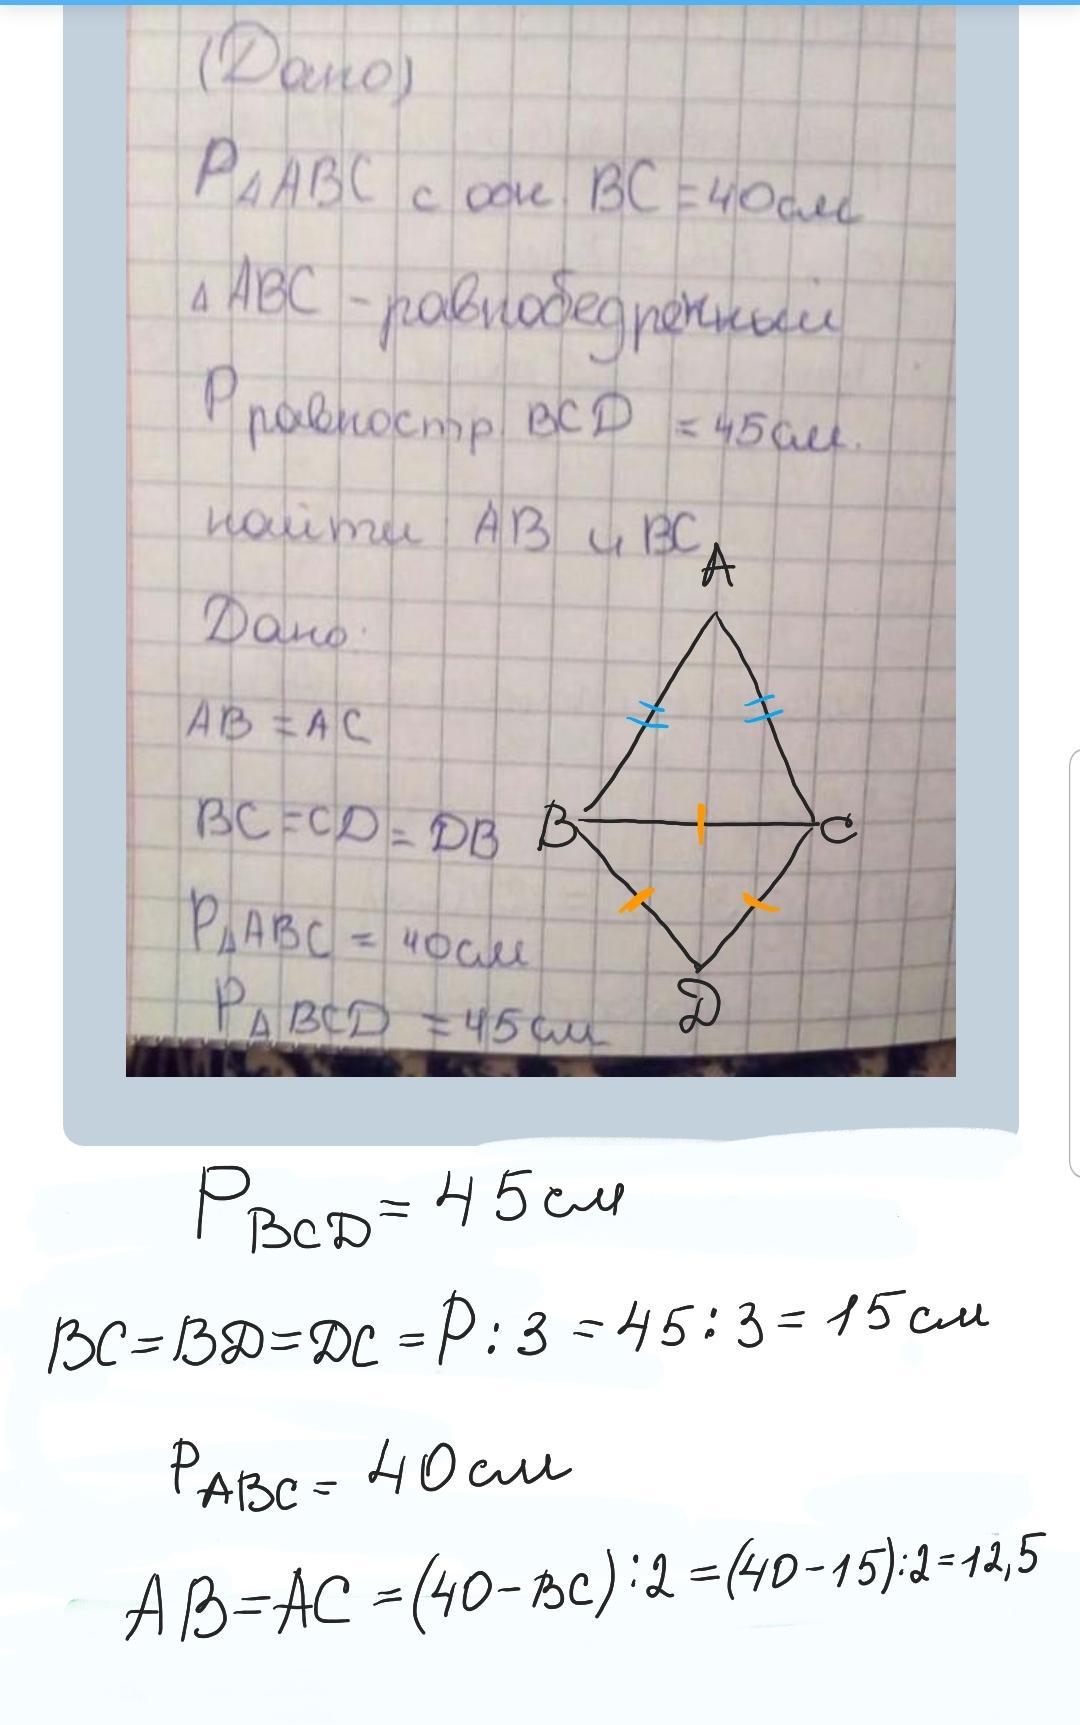 (Дано)
P△ABC с осн. BC = 40см
△ABC - равнобедренный
P равностр BCD = 45см.
найти AB и BC
Дано:
AB = AC
BC = CD = DB
P△ABC = 40см
P△BCD = 45см
A
B
C
D
P BCD = 45см
BC = BD = DC = P : 3 = 45 : 3 = 15см
P ABC = 40см
AB = AC = (40 - BC) : 2 = (40 - 15) : 2 = 12,5